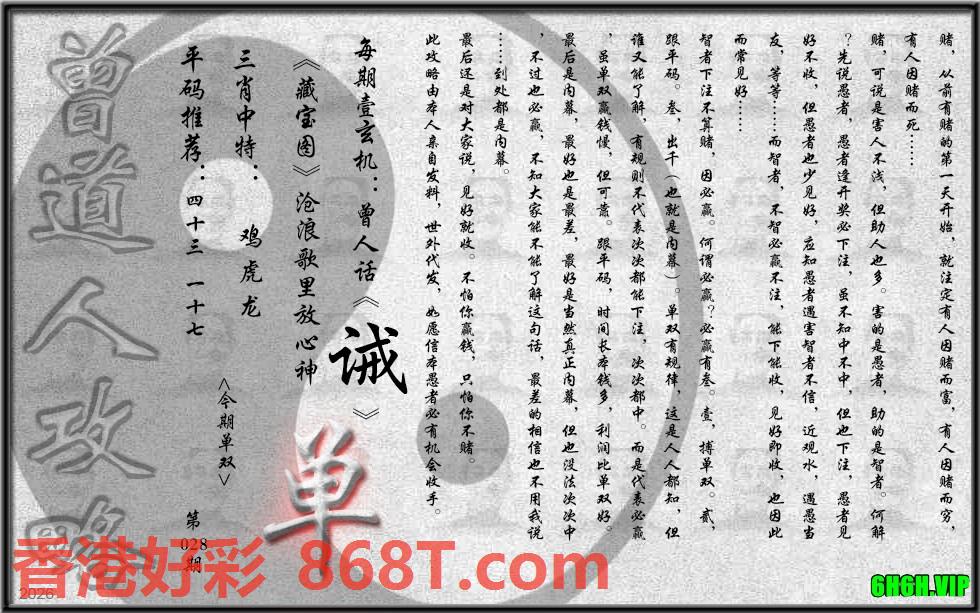 赌，从前有赌的第一天开始，就注定有人因赌而富，有人因赌而穷，
有人因赌而死……
赌，可说是害人不浅，但助人也多。害的是愚者，助的是智者。何解
？先说愚者，愚者逢开奖必下注，虽不知中不中，但也下注，愚者见
好不收，但愚者也少见好，应知愚者遇害智者不信，近观水，遇愚当
友，等等……而智者，不智必赢不注，能下能收，见好即收，也因此
而常见好……
智者下注不算赌，因必赢。何谓必赢？必赢有叁。壹，搏单双。贰，
跟平码。叁，出千（也就是内幕）。单双有规律，这是人人都知，但
谁又能了解，有规则不代表次次都能下注，次次都中。而是代表必赢
，虽单双赢钱慢，但可靠。跟平码，时间长本钱多，利润比单双好。
最后是内幕，最好也是最差，最好是当然真正内幕，但也没法次次中
，不过也必赢，不知大家能不能了解这句话，最差的相信也不用我说
……到处都是内幕。
最后还是对大家说，见好就收。不怕你赢钱，只怕你不赌。
此攻略由本人亲自发料，世外代发，如愿信本愚者必有机会收手。
每期壹玄机：曾人话《诫》
《藏宝图》沧浪歌里放心神
三肖中特：鸡虎龙
平码推荐：四十三 一十七
<今期单双>
单
第
028
期
曾道人攻略
香港好彩 868T.com
2026
6H6H.VIP